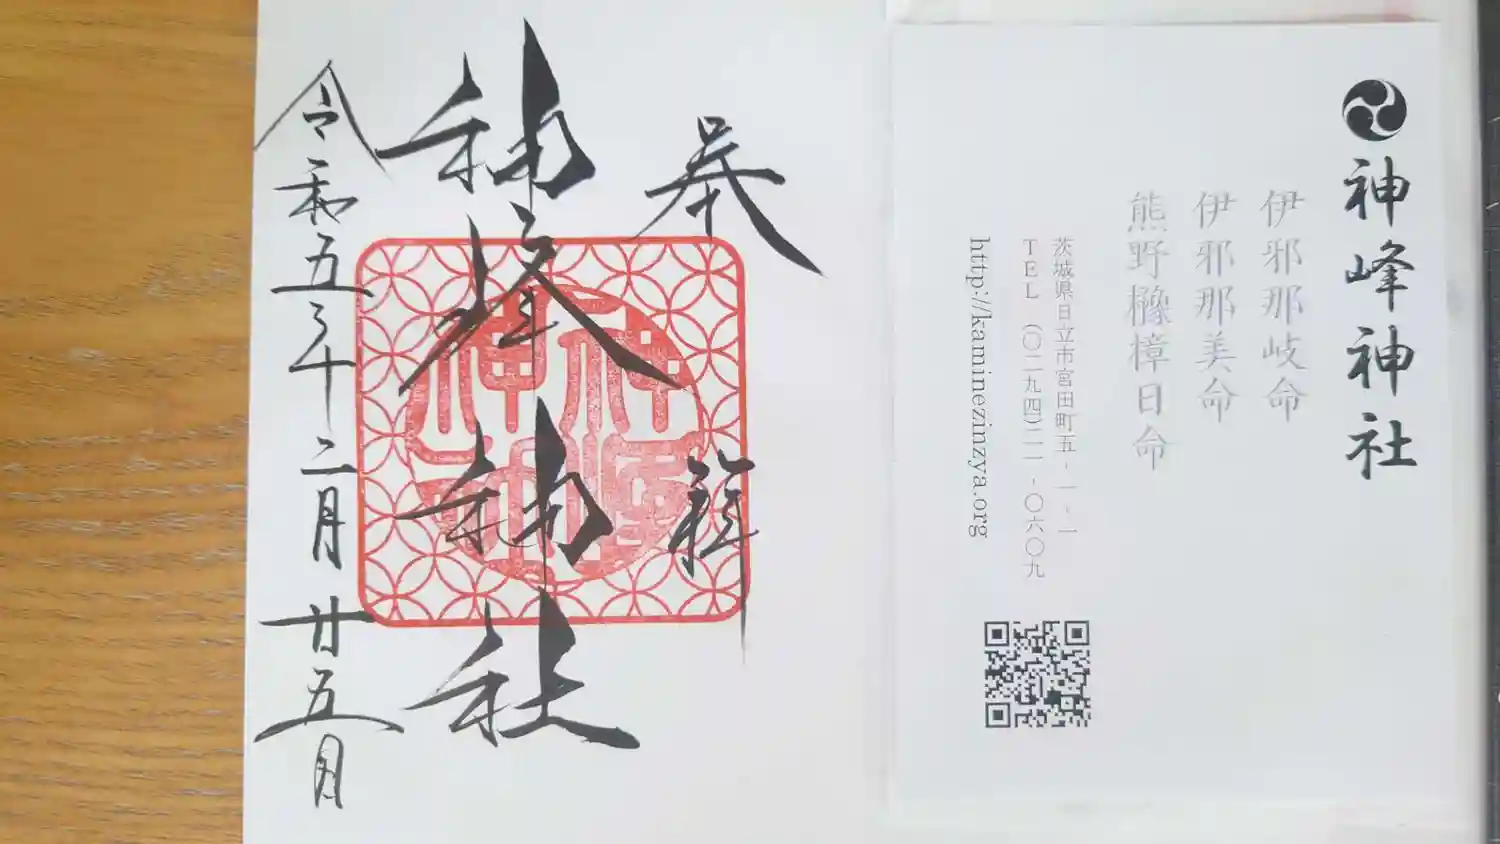 神峰神社
伊邪那岐命
伊邪那美命
熊野櫲樟日命
茨城県日立市宮田町五-一-一
TEL (〇二九四)二一-〇六〇九
http://kaminezinzya.org
奉拝
神峰神社
令和五年十二月廿五日